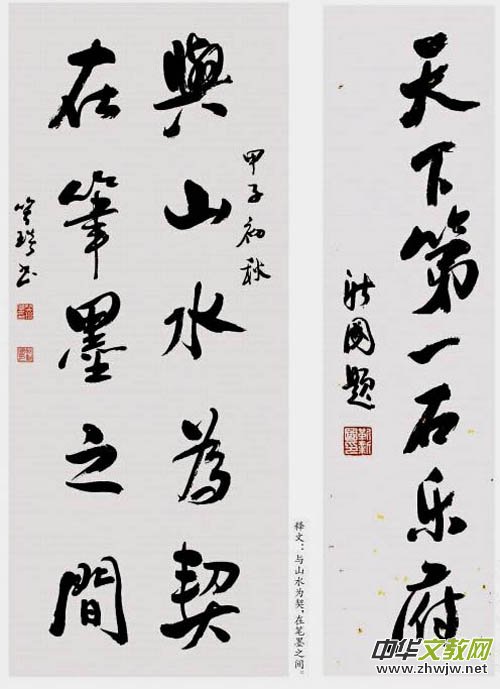 天下第一石乐府
與山水為契
甲子初秋
在筆墨之間
释文：与山水为契，在笔墨之间。
中华文教网
www.zhwjw.net